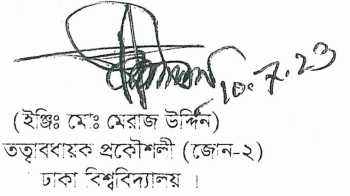 10.7.23
(ইঞ্জিঃ মোঃ মেরাজ উর্দ্দিন)
তত্বাবধায়ক প্রকৌশলী (জোন-২)
ঢাকা বিশ্ববিদ্যালয় ।